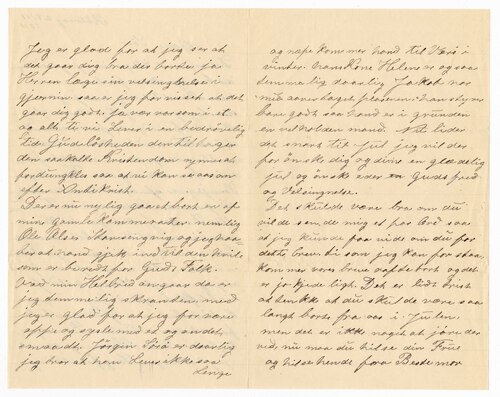 Jeg er glad for at jeg ser at
det gaar dig bra der borte ja
Herren læge sin velsingnelse i
gjernin saa er jeg forvisset at det
gaar dig godt. ja var som i et
og alt ti vi Lever i en bedrøvelig
tid Gudløsheden den tiltager
den saakalte Kristendom synnes at
fordungkles saa at vi kan se aa som
efter Antikrist.
Der er nu nylig gaaet bort en af
min gamle kammerather nemlig
Ole Olser i Hansengvig og jeg haa-
ber at hand gjik ind vil den hvile
som er beredt for Guds Folk.
Vad min Helbred angaar da er
jeg temmelig skranten, med
jeg er glad for at jeg for være
oppe og sysle med et og andet
smaadt. Jørgin Sørå er daarlig
jeg tror at han Lever ikke saa
Lenge
og nøpe kommer hand til Værø i
vinter hans Kone Helene er og saa
temmelig daarlig Jakob har
nu overtaget han styrer
bare godt saa hand er i grunden
en velholden mand. Nu lider
det snart til jul jeg vil der
for ønske dig og dine en glædelig
jul og ønsk eder en Guds fred
og Velsingnelse.
Det skulde være bra om du
vilde sende mig et par Ord saa
at jeg kunde faa vide om du for
dette brev. ti som jeg kan forstaa
kommer vore breve ofte bort og det
er jo kjedeligt. Det er lidt trist
at tenkke at du skulde være saa
langt borte fra oss i Julen.
men det er ikke noget at gøre der
ved, nu maa du hilse din Frue
og hilse hende fra Bestemor